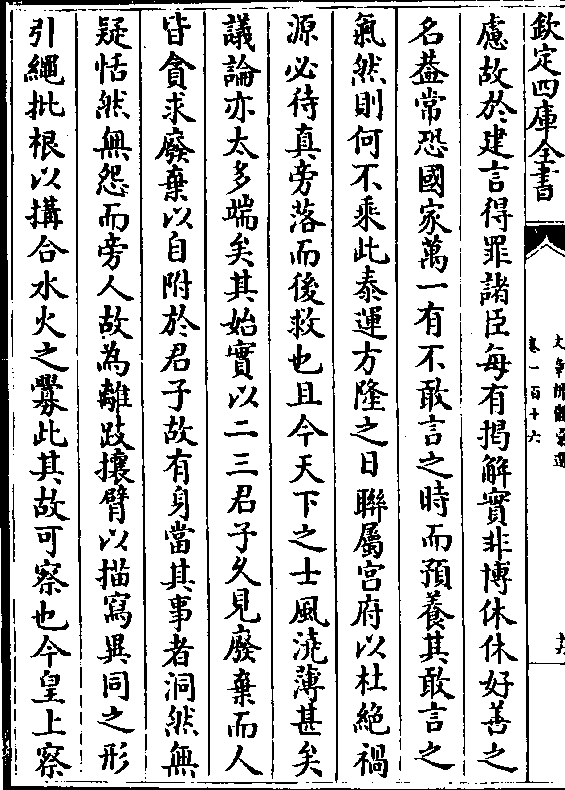 欽定四庫全書
卷一百十六
慮故於建言得罪諸臣每有揭解實非博休休好善之
名葢常恐國家萬一有不敢言之時而預養其敢言之
氣然則何不乘此泰運方隆之日聯屬宮府以杜絕禍
源必待真旁落而後救也且今天下之士風澆薄甚矣
議論亦太多端矣其始實以二三君子久見廢棄而人
皆貪求廢棄以自附於君子故有身當其事者洞然無
疑恬然無怨而旁人故為離跂攘臂以描寫異同之形
引繩批根以搆合水火之釁此其故可察也今皇上察